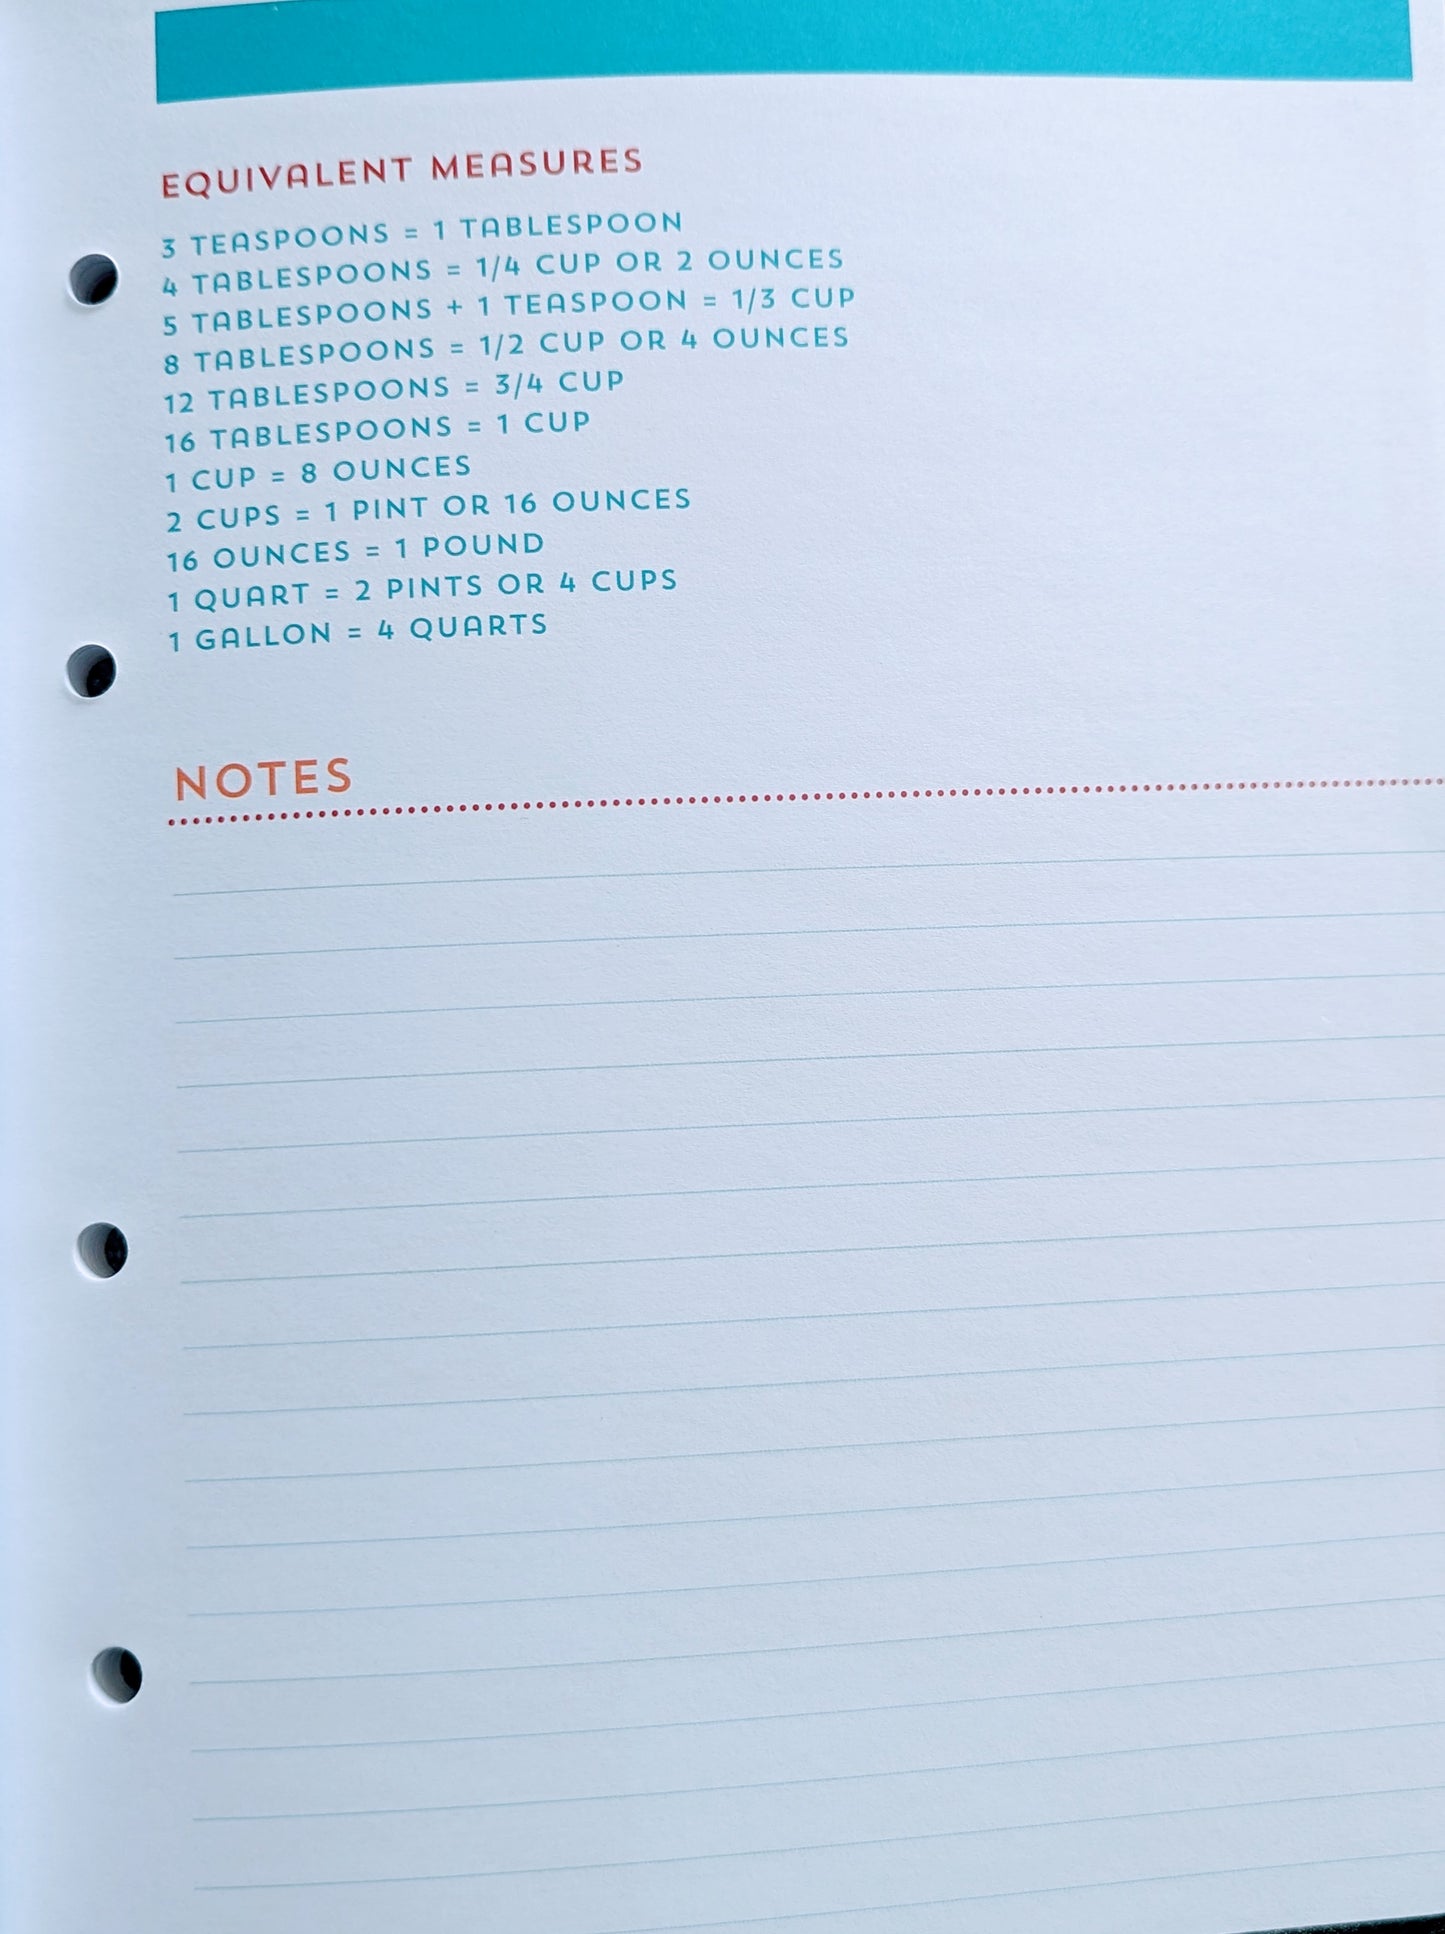 EQUIVALENT MEASURES
3 TEASPOONS = 1 TABLESPOON
4 TABLESPOONS = 1/4 CUP OR 2 OUNCES
5 TABLESPOONS + 1 TEASPOON = 1/3 CUP
8 TABLESPOONS = 1/2 CUP OR 4 OUNCES
12 TABLESPOONS = 3/4 CUP
16 TABLESPOONS = 1 CUP
1 CUP = 8 OUNCES
2 CUPS = 1 PINT OR 16 OUNCES
16 OUNCES = 1 POUND
1 QUART = 2 PINTS OR 4 CUPS
1 GALLON = 4 QUARTS
NOTES